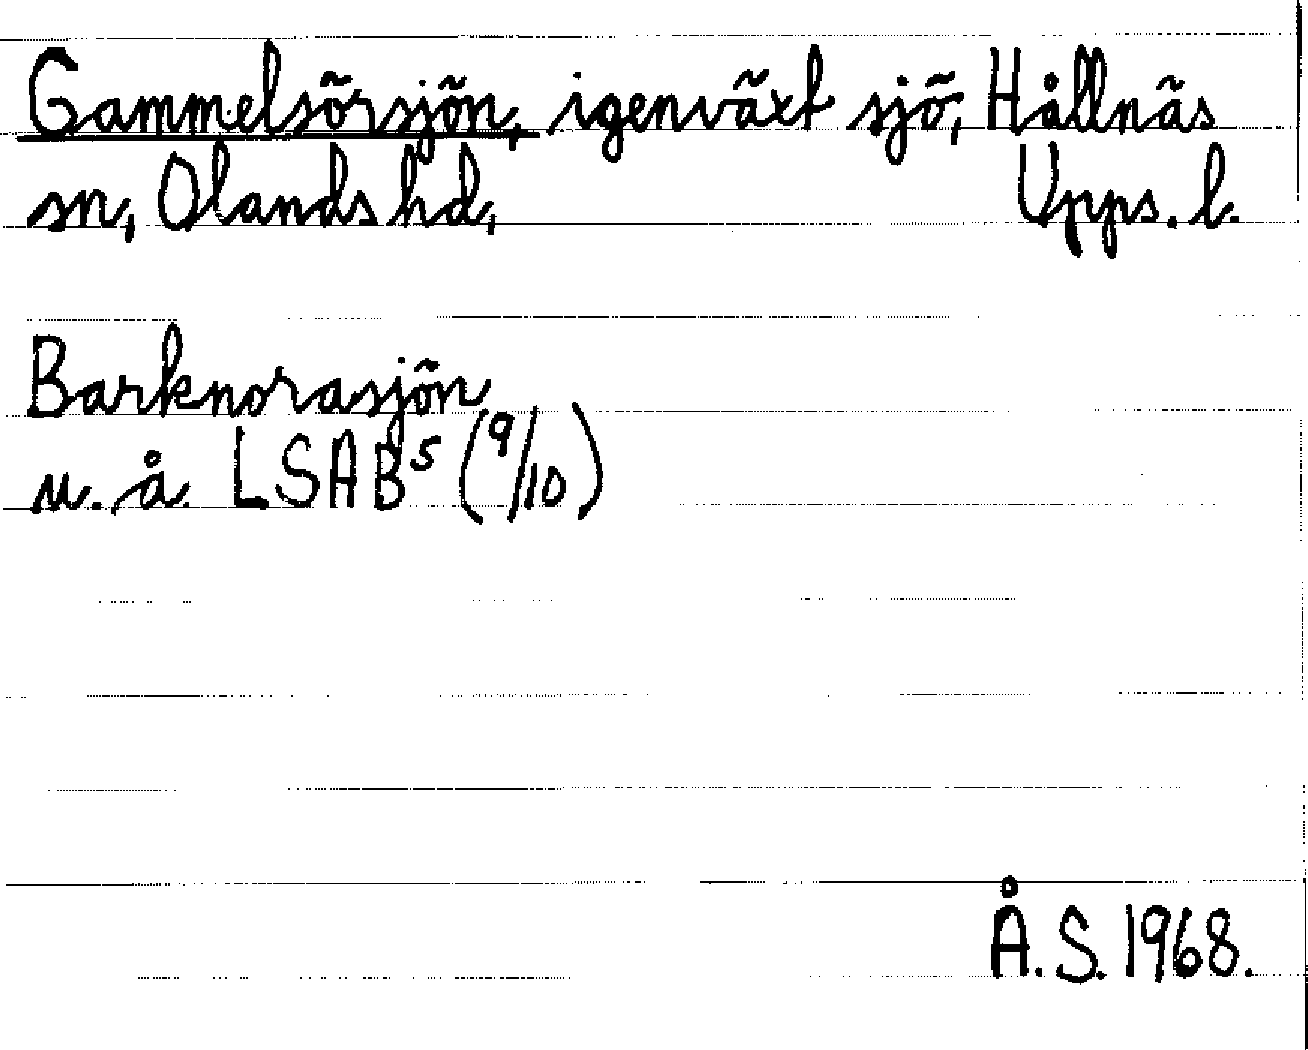 Gammelsörsjön, igenväxt sjö, Hållnäs
sn, Olands hd, Upps. l.
Barknorasjön
u. å. LSA B⁵ (9/10)
Å. S. 1968.